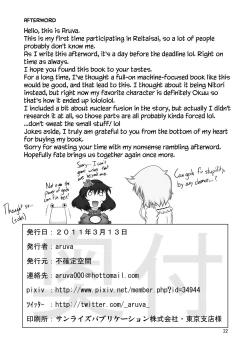 AFTERWORD
Hello, this is Aruva.
This is my first time participating in Reitaisai, so a lot of people
probably don't know me.
As I write this afterword, it's a day before the deadline lol. Right on
time as always.
I hope you found this book to your tastes.
For a long time, I've thought a full-on machine-focused book like this
would be good, and that lead to this. I thought about it being Nitori
instead, but right now my favorite character is definitely Okuu so
that's how it ended up lolololol.
I included a bit about nuclear fusion in the story, but actually I didn't
research it at all, so those parts are all probably kinda forced lol.
...don't sweat the small stuff/ lol
Jokes aside, I truly am grateful to you from the bottom of my heart
for buying my book.
Sorry for wasting your time with my nonsense rambling afterword.
Hopefully fate brings us together again once more.
奥付
発行日：２０１１年３月１３日
発行者：aruva
発行元：不確定空間
連絡先：aruva000@hottomail.com
pixiv：http://www.pixiv.net/member.php?id=34944
ﾂｲｯﾀｰ：http://twitter.com/_aruva_
印刷所：サンライズパブリケーション株式会社・東京支店様
22